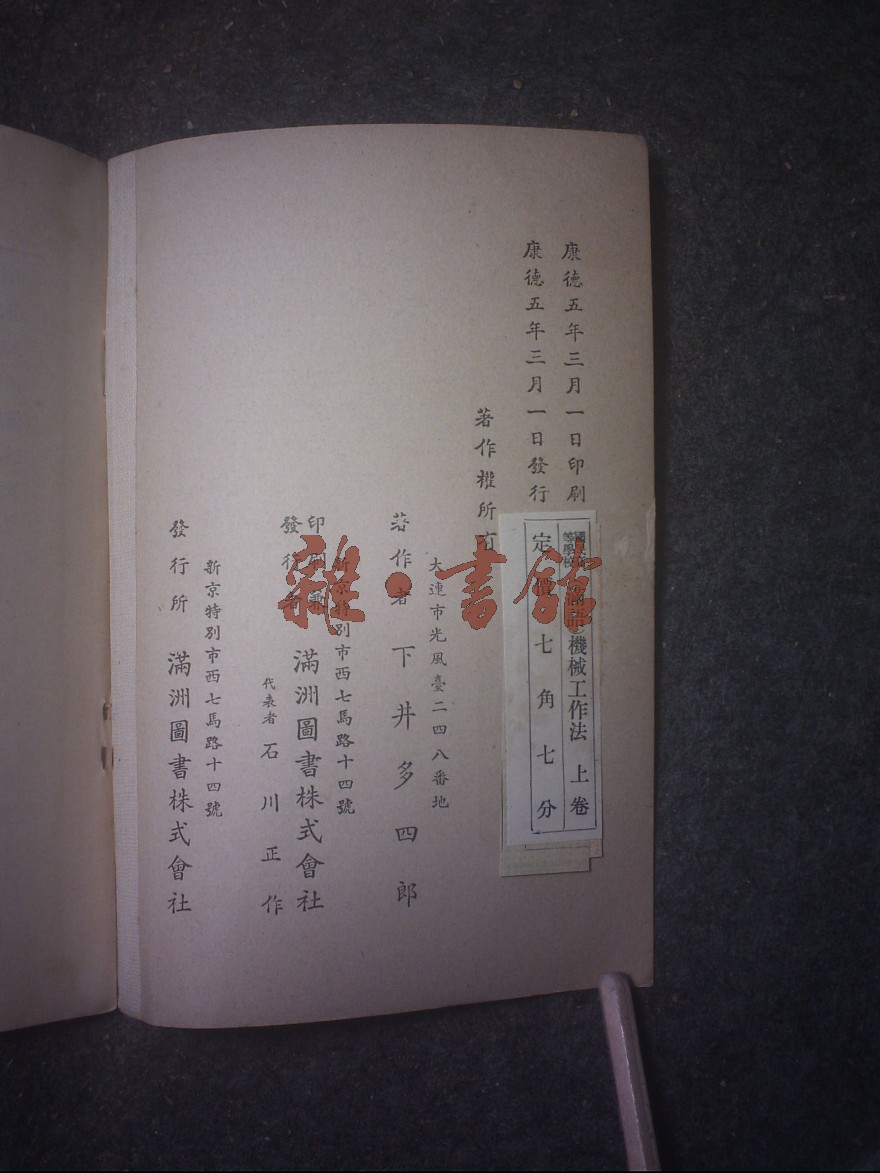 康德五年三月一日印刷
康德五年三月一日發行
國民高等學校 滿語機械工作法 上卷
定價七角七分
著作權所有
大連市光風臺二四八番地
著作者 下井多四郎
新京特別市西七馬路十四號
印刷兼發行者 滿洲圖書株式會社
代表者 石川正作
新京特別市西七馬路十四號
發行所 滿洲圖書株式會社
雜·書館